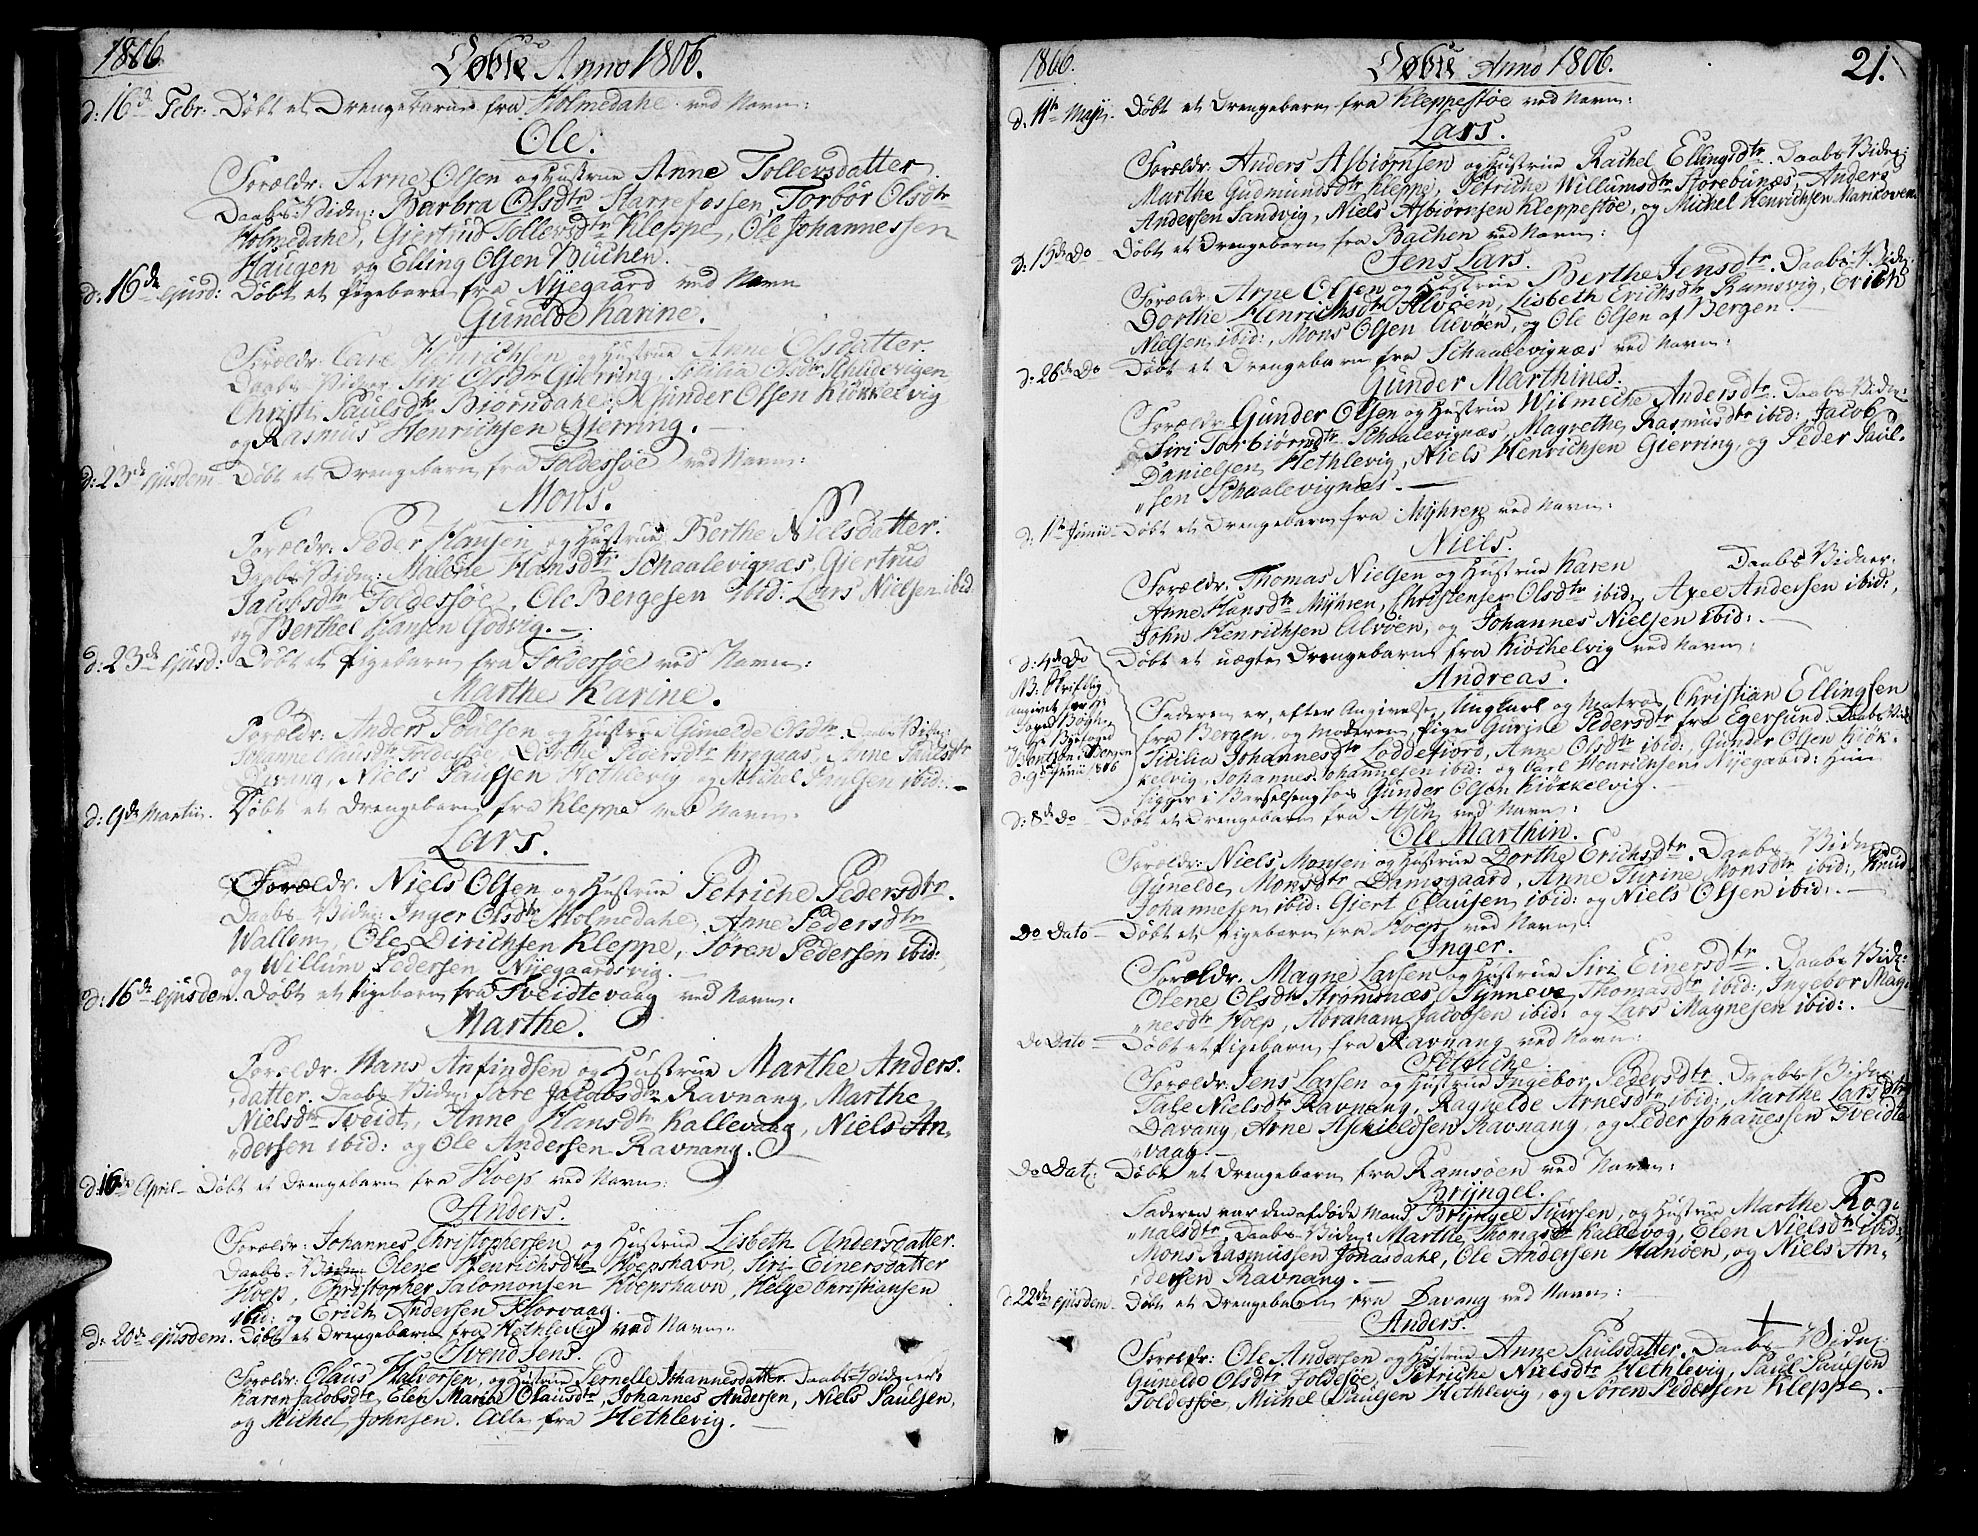 1806. Døbte Anno 1806.
d: 16de Febr. Døbt et Drengebarn fra Holmedahl ved Navn:
Ole.
Forældr. Arne Olsen og Hustrue Anne Tollevsdatter.
Daabs-Vidn: Barbra Olsdtr Starrefossen, Torbør Olsdtr
Holmedahl, Giertrud Tollevsdtr Kleppe, Ole Johannessen
Haugen og Elling Olsen Buchen.
d: 16de ejusd: Døbt et Pigebarn fra Nÿegaard ved Navn
Gunelde Karine.
Forældr. Carl Henrichsen og Hustrue Anne Olsdatter.
Daabs Vidner Siri Olsdtr Gierring, Olsdtr
Christi Paulsdtr Biørndahl, Gunder Olsen Kiøkkelvig
og Rasmus Henrichsen Gierring.
d: 23de ejusdem Døbt et Drengebarn fra Foldessøe ved Navn:
Mons.
Forældr: Peder Hansen og Hustrue Berthe Nielsdatter.
Daabs-Vidn: Malene Hansdtr Schaalevignæs, Giertrud
Jacobsdtr Foldessøe, Ole Bergesen ibid: Lars Nielsen ibid
og Berthel Hansen Godvig.
d: 23de ejusd: Døbt et Pigebarn fra Foldessøe ved Navn:
Marthe Karine.
Forældr: Anders Poulsen og Hustrue Gunelde Olsdtr. Daabs Vidn:
Johanne Clausdtr Foldessøe, Dorthe Pedersdtr, Anne Paulsdtr
Davang, Niels Paulsen Hethlevig og Michel Paulsen ibid:
d: 9de Martii. Døbt et Drengebarn fra Kleppe ved Navn:
Lars.
Forældr. Niels Olsen og Hustrue Petriche Pedersdtr.
Daabs-Vidn: Inger Olsdtr Holmedahl, Anne Pedersdtr
Wallem, Ole Dirichsen Kleppe, Søren Pedersen ibid:,
og Willum Pedersen Nÿegaardsvig.
d: 16de ejusdem. Døbt et Pigebarn fra Tveidtevaag ved Navn:
Marthe.
Forældr. Hans Anfindsen og Hustrue Marthe Anders-
datter. Daabs-Vidn: Jacobsdtr Ravnang, Marthe
Nielsdtr Tveidt, Anne Hansdtr Kallevaag, Niels An-
dersen ibid: og Ole Andersen Ravnang.
d: 16de April Døbt et Drengebarn fra Hoep ved Navn:
Anders.
Forældr: Johannes Christophersen og Hustrue Lisbeth Andersdatter.
Daabs-Vidn: Olene Henrichsdtr Hoepshavn, Siri Einersdatter
Hoep, Christopher Salomonsen Hoepshavn, Helge Christiansen
ibid: og Erich Andersen Florvaag.
d: 20de ejusdem. Døbt et Drengebarn fra Hethlevig ved Navn:
Svend Jens.
Forældr: Claus Halvorsen, og Hustrue Pernelle Johannesdatter. Daabs-Vidner:
Karen Jacobsdtr, Elen Maria Clausdtr, Johannes Andersen, Niels Paulsen,
og Michel Johnsen. Alle fra Hethlevig.
1806. Døbte Anno 1806. 21.
d: 11te Maji Døbt et Drengebarn fra Kleppestøe ved Navn:
Lars.
Forældr: Anders Asbiørnsen og Hustrue Rachel Ellingsdtr. Daabs-Vidn:
Marthe Gudmundsdtr Kleppe, Petriche Willumsdtr Storebunæs, Anders
Andersen Sandvig, Niels Asbiørnsen Kleppestøe, og Michel Henrichsen Marikoven.
d: 15de Do Døbt et Drengebarn fra Bachen ved Navn:
Jens Lars.
Forældr: Arne Olsen og Hustrue Berthe Jensdtr. Daabs-Vidn:
Dorthe Henrichsdtr Alvøen, Lisbeth Erichsdtr Ramsvig, Erich
Nielsen ibid:, Mons Olsen Alvøen, og Ole Olsen af Bergen.
d: 26de Do Døbt et Drengebarn fra Schaalevignæs ved Navn:
Gunder Marthines.
Forældr: Gunder Olsen og Hustrue Wilmeche Andersdtr. Daabs-Vidn:
Siri Torbiørnsdtr Schaalevignæs, Magrethe Rasmusdtr ibid: Jacob
Danielsen Hethlevig, Niels Henrichsen Gierring, og Peder Paul-
sen Schaalevignæs.
d: 1te Junii Døbt et Drengebarn fra Mÿhren ved Navn:
Niels.
Forældr. Thomas Nielsen og Hustrue Karen Daabs-Vidner:
Anne Hansdtr Mÿhren, Christense Olsdtr ibid:, Axel Andersen ibid:,
John Henrichsen Alvøen, og Johannes Nielsen ibid:
d: 4de Do Døbt et uægte Drengebarn fra Kiøchelvig ved Navn:
NB: Skriftlig
angivet for Hr
Foged
og Hr Byefoged
i Bergen
d: 9de Junii 1806
Andreas.
Faderen er, efter Angivelse, Ungkarl og Matros Christian Ellingsen
fra Bergen, og Moderen Pige Guricie Pedersdtr fra Egersund. Daabs-Vid:
Sicilia Johannesdtr Loddefiord, Anne Olsdtr ibid:, Gunder Olsen Kiøk-
kelvig, Johannes Johannesen ibid: og Carl Henrichsen Nÿegaard: Hun
ligger i Barselseng hos Gunder Olsen Kiøkkelvig.
d: 8de do Døbt et Drengebarn fra Ash ved Navn:
Ole Marthin.
Forældr: Niels Monsen og Hustrue Dorthe Erichsdtr. Daabs-Vidn:
Gunelde Monsdtr Damsgaard, Anne Turine Monsdtr ibid:, Knud
Johannesen ibid: Giert Clausen ibid: og Niels Olsen ibid:
Do Dato Døbt et Pigebarn fra Hoep ved Navn:
Inger.
Forældr. Magne Larsen og Hustrue Siri Einersdtr. Daabs-Vidn:
Olene Olsdtr Strømsnæs, Synneve Thomasdtr ibid:, Ingebor Mag-
nesdtr Hoep, Abraham Jacobsen ibid: og Lars Magnesen ibid:
Do Dato Døbt et Pigebarn fra Ravnang ved Navn:
Petriche.
Forældr: Jens Larsen og Hustrue Ingebor Pedersdtr. Daabs-Vidn:
Tale Nielsdtr Ravnang, Raghelde Arnesdtr ibid:, Marthe Larsdtr
Davang, Arne Aschieldsen Ravnang, og Peder Johannessen Tveidte-
vaag.
Do Dat: Døbt et Drengebarn fra Ramsøen ved Navn:
Brÿngel.
Faderen var den afdøde Mand Brÿngel Siursen, og Hustrue Marthe Rog-
nalsdtr, Daabs-Vidn: Marthe Thomasdtr Kallevog, Elen Nielsdtr ibid:,
Mons Rasmussen Jonasdahl, Ole Andersen Hanøen, og Niels An-
dersen Ravnang.
d: 22de ejusdem Døbt et Drengebarn fra Davang ved Navn:
Anders.
Forældr: Ole Andersen og Hustrue Anne Paulsdatter. Daabs-Vidn:
Gunelde Olsdtr Foldessøe, Petriche Nielsdtr Hethlevig, Paul Paulsen
Foldessøe, Michel Paulsen Hethlevig, og Søren Pedersen Kleppe.